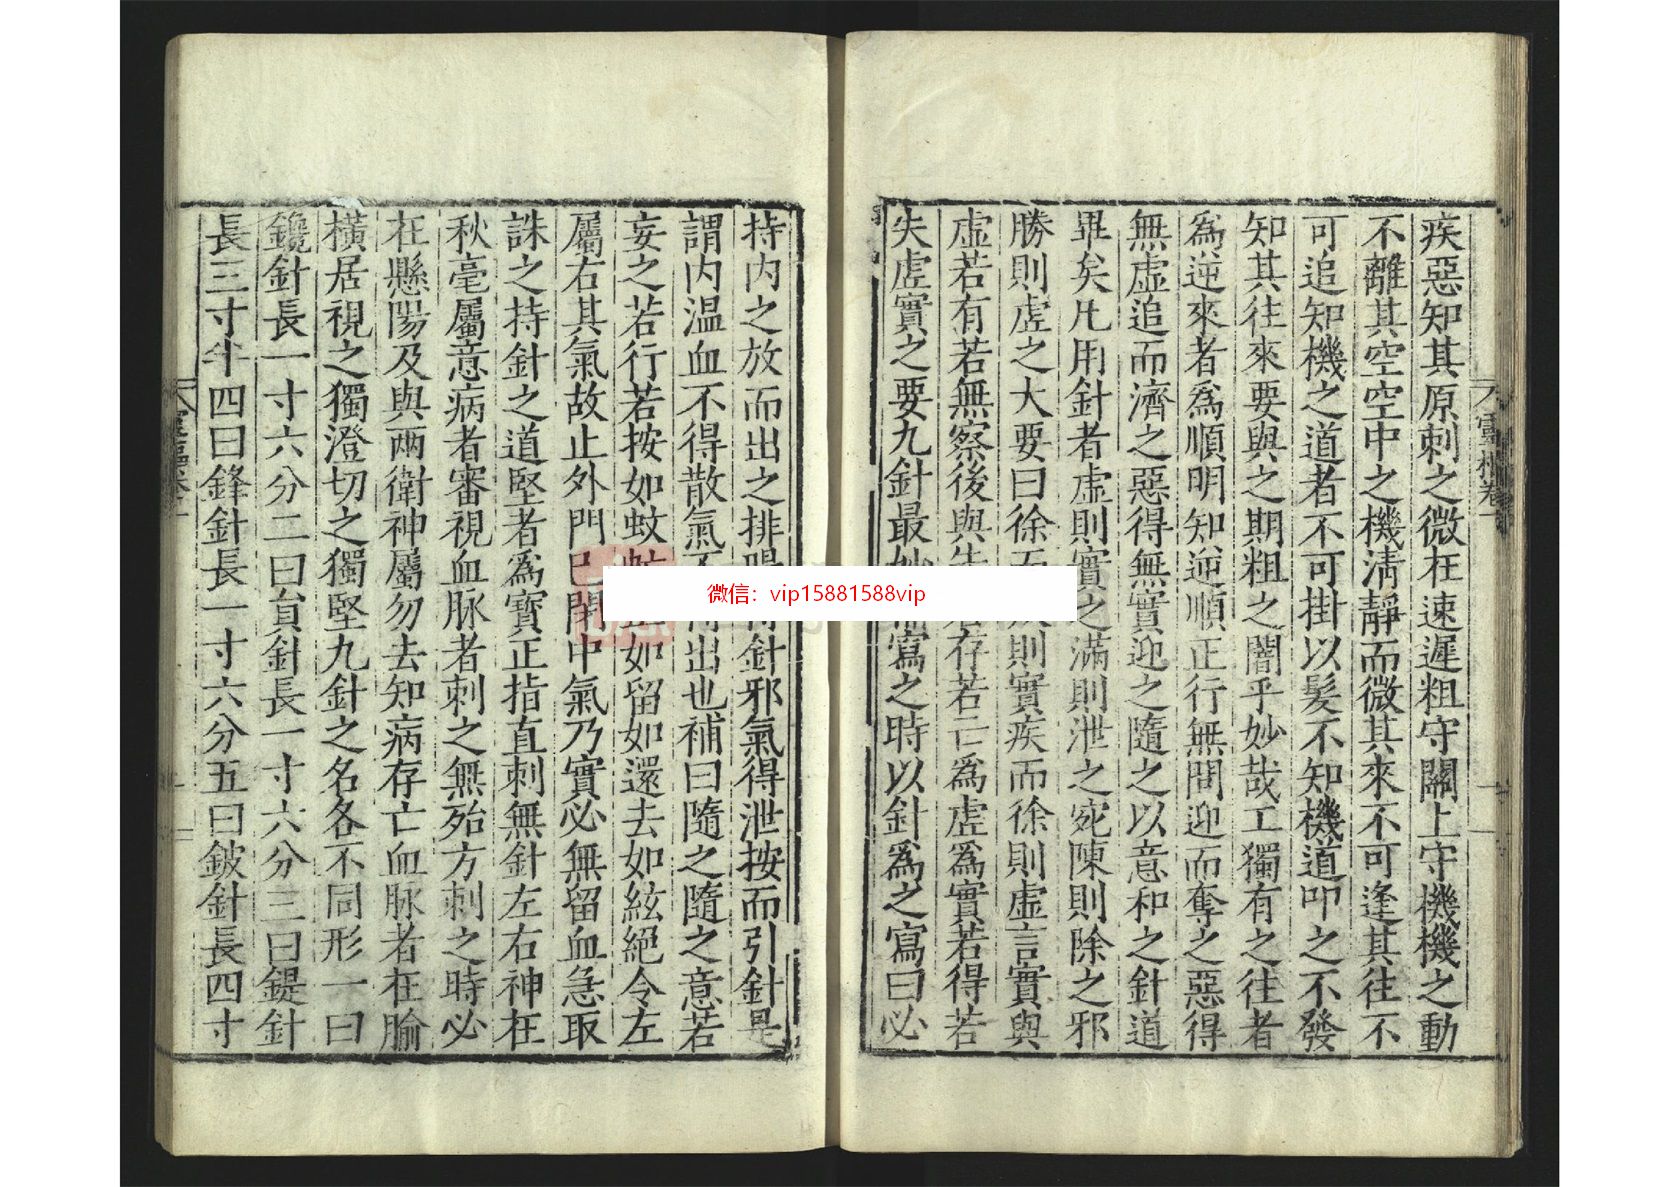 疾惡知其原刺之微在速遲粗守關上守機機之動
不離其空空中之機淸靜而微其來不可逢其往不
可追知機之道者不可掛以髪不知機道叩之不發
知其往來要與之期粗之闇乎妙哉工獨有之往者
爲逆來者爲順明知逆順正行無問迎而奪之惡得
無虛追而濟之惡得無實迎之隨之以意和之針道
畢矣凡用針者虛則實之滿則泄之宛陳則除之邪
勝則虛之大要曰徐而則實疾而徐則虛言實與
虛若有若無察後與先存若亡爲虛爲實若得若
失虛實之要九針最妙寫之時以針爲之寫曰必
持内之放而出之排陽針邪氣得泄按而引針是
謂内温血不得散氣不得出也補曰隨之隨之意若
妄之若行若按如蚊虻如留如還去如絃絕令左
屬右其氣故止外門已閉中氣乃實必無留血急取
誅之持針之道堅者爲寶正指直刺無針左右神在
秋毫屬意病者審視血脉者刺之無殆方刺之時必
在懸陽及與兩衛神屬勿去知病存亡血脉者在腧
橫居視之獨澄切之獨堅九針之名各不同形一曰
鑱針長一寸六分二曰員針長一寸六分三曰鍉針
長三寸半四曰鋒針長一寸六分五曰鈹針長四寸
靈樞卷一
微信：vip15881588vip